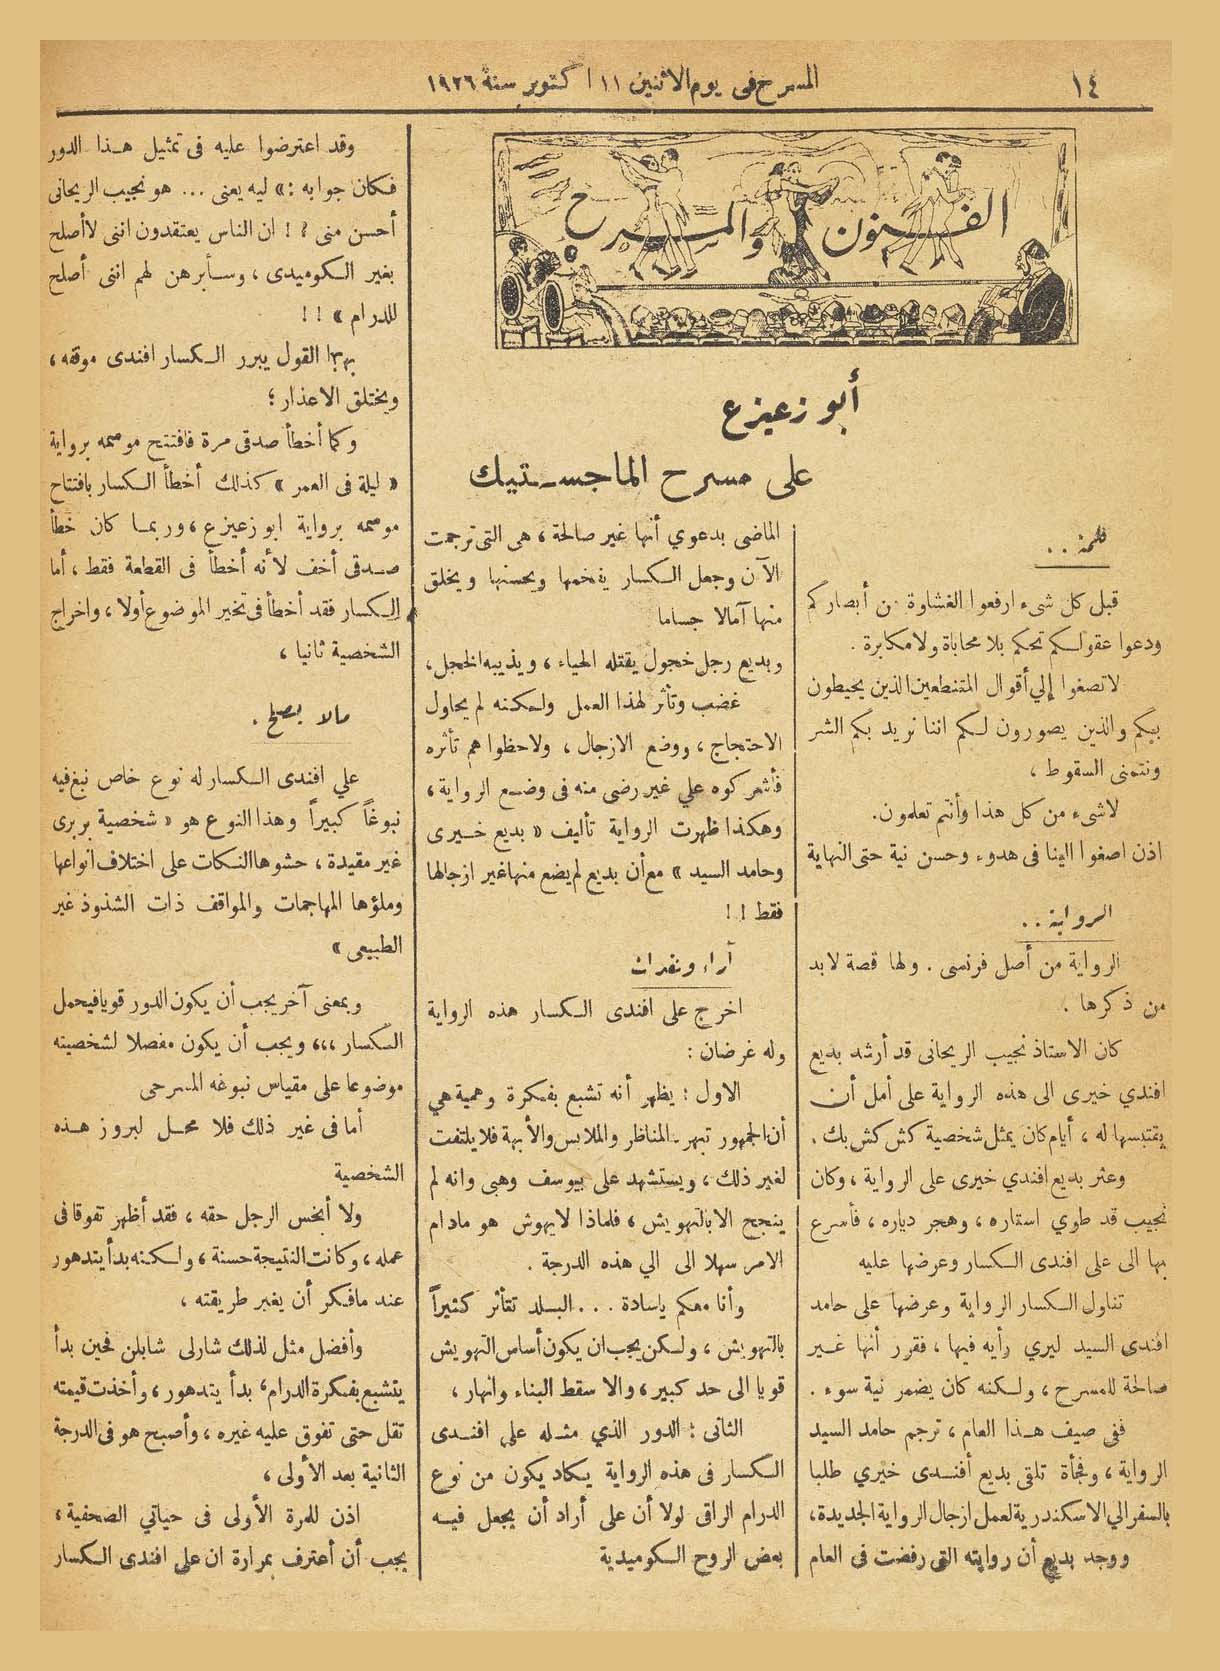 ١٤
المسرح فى يوم الاثنين ١١ اكتوبر سنة ١٩٢٦
الفنون والمسرح
أبو زعيزع
على مسرح الماجستيك
كلمة . .
قبل كل شىء ارفعوا الغشاوة من أبصاركم
ودعوا عقولكم تحكم بلا محاباة ولا مكابرة .
لا تصغوا إلي أقوال المتنطعين الذين يحيطون
بيكم والذين يصورون لكم اننا نريد بكم الشر
ونتمنى السقوط ،
لا شىء من كل هذا وأنتم تعلمون.
اذن اصغوا الينا فى هدوء وحسن نية حتى النهاية
الرواية . .
الرواية من أصل فرنسى . ولها قصة لابد
من ذكرها .
كان الاستاذ نجيب الريحانى قد أرشد بديع
افندي خيرى الى هذه الرواية على أمل أن
يقتبسها له ، أيام كان يمثل شخصية كش كش بك .
وعثر بديع افندي خيرى على الرواية ، وكان
نجيب قد طوي استاره ، وهجر دياره ، فأسرع
بها الى على افندى الكسار وعرضها عليه
تناول الكسار الرواية وعرضها على حامد
افندى السيد ليري رأيه فيها ، فقرر أنها غير
صالحة للمسرح ، ولكنه كان يضمر نية سوء .
ففى صيف هذا العام ، ترجم حامد السيد
الرواية ، وفجأة تلقى بديع أفندى خيري طلبا
بالسفر الي الاسكندرية لعمل ازجال الرواية الجديدة ،
ووجد بديع أن روايته التى رفضت فى العام
الماضى بدعوي أنها غير صالحة ، هى التى ترجمت
الآن وجعل الكسار يفخمها ويحسنها ويخلق
منها آمالا جساما
وبديع رجل خجول يقتله الحياء ، ويذيبه الخجل ،
غضب وتأثر لهذا العمل ولكنه لم يحاول
الاحتجاج ، ووضع الازجال ، ولاحظوا هم تأثره
فأشركوه علي غير رضى منه فى وضع الرواية ،
وهكذا ظهرت الرواية تأليف « بديع خيرى
وحامد السيد » مع أن بديع لم يضع منها غير ازجالها
فقط ! !
آراء ونقدات
اخرج على افندى الكسار هذه الرواية
وله غرضان :
الاول : يظهر أنه تشبع بفكرة وهمية هي
أن الجمهور تبهره المناظر والملابس والأبهة فلا يلتفت
لغير ذلك ، ويستشهد على بيوسف وهبى وانه لم
ينجح الا بالتهويش ، فلماذا لا يهوش هو مادام
الامر سهلا الى الي هذه الدرجة .
وأنا معكم يا سادة . . . البلد تتأثر كثيراً
بالتهويش ، ولكن يجب ان يكون أساس التهويش
قويا الى حد كبير ، والا سقط البناء وانهار ،
الثانى : الدور الذي مثله على افندى
الكسار فى هذه الرواية يكاد يكون من نوع
الدرام الراقى لولا أن على أراد أن يجعل فيه
بعض الروح الكوميدية
وقد اعترضوا عليه فى تمثيل هذا الدور
فكان جوابه : « ليه يعنى ... هو نجيب الريحانى
أحسن منى ? ! ان الناس يعتقدون اننى لا أصلح
بغير الكوميدى ، وسأبرهن لهم اننى أصلح
للدرام » ! !
بهذا القول يبرر الكسار افندى موقفه ،
ويختلق الاعذار ؛
وكما أخطأ صدقى مرة فافتتح موسمه برواية
« ليلة فى العمر » كذلك أخطأ الكسار بافتتاح
موسمه برواية ابو زعيزع ، وربما كان خطأ
صدقى أخف لأنه أخطأ فى القطعة فقط ، أما
الكسار فقد أخطأ فى تخير الموضوع أولا ، واخراج
الشخصية ثانيا ،
مالا يصلح .
علي افندى الكسار له نوع خاص نبغ فيه
نبوغاً كبيراً وهذا النوع هو « شخصية بربرى
غير مقيدة ، حشوها النكات على اختلاف انواعها
وملؤها المهاجمات والمواقف ذات الشذوذ غير
الطبيعى »
وبمعنى آخر يجب أن يكون الدور قويا فيحمل
الكسار ،،، ويجب أن يكون مفصلا لشخصيته
موضوعا على مقياس نبوغه المسرحى
أما فى غير ذلك فلا محل لبروز هذه
الشخصية
ولا أبخس الرجل حقه ، فقد أظهر تفوقا فى
عمله ، وكانت النتيجة حسنة ، ولكنه بدأ يتدهور
عند ما فكر أن يغير طريقته ،
وأفضل مثل لذلك شارلى شابلن فحين بدأ
يتشبع بفكرة الدرام ، بدأ يتدهور ، وأخذت قيمته
تقل حتى تفوق عليه غيره ، وأصبح هو فى الدرجة
الثانية بعد الأولى ،
اذن للمرة الأولى فى حياتي الصحفية ،
يجب أن أعترف بمرارة ان على افندى الكسار